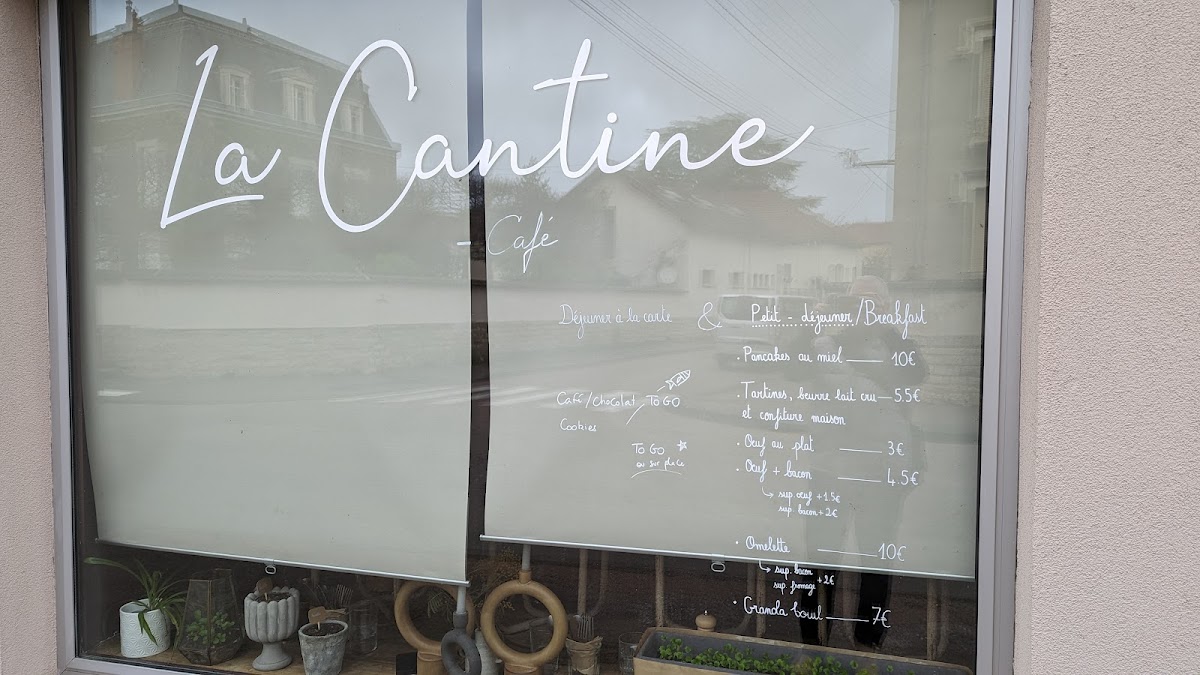 La Cantine
- Café
Déjeuner à la carte & Petit - déjeuner/Breakfast
. Pancakes au miel 10€
. Tartines, beurre lait cru 5.5€
et confiture maison
. Oeuf au plat 3€
. Oeuf + bacon 4.5€
sup. oeuf + 1.5€
sup. bacon + 2€
. Omelette 10€
sup. bacon
sup. fromage + 2€
. Granola bowl 7€
Café/Chocolat TO GO
Cookies
TO GO
ou sur place